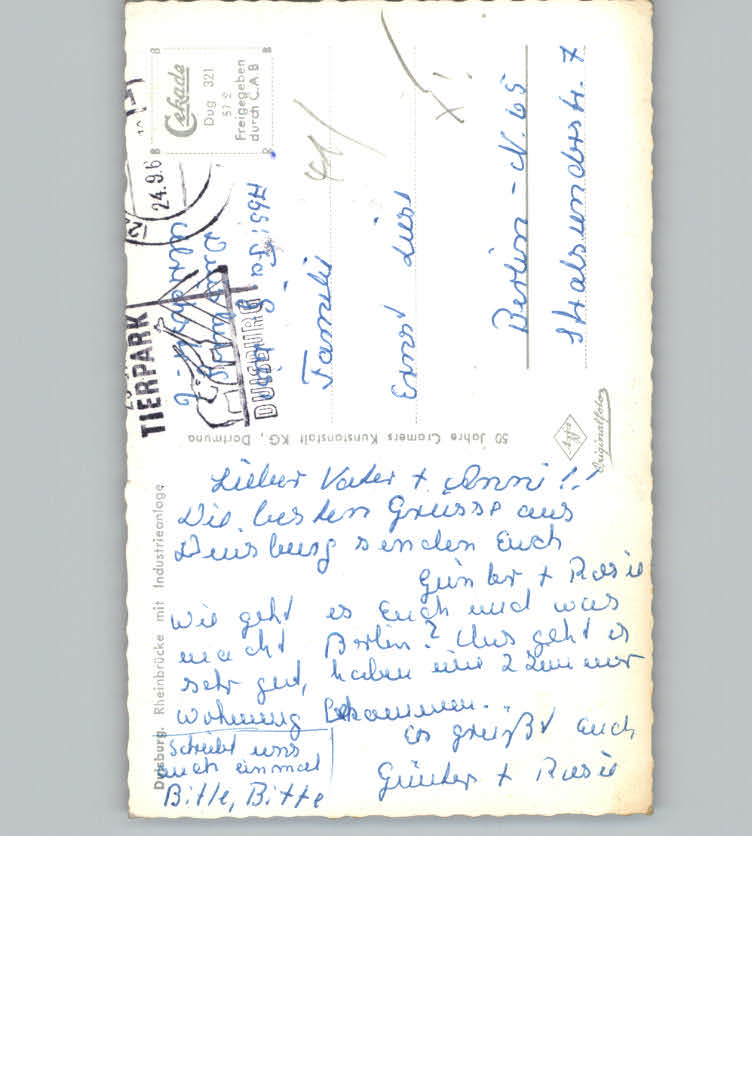 Lieber Vater + Anni!!
Die besten Grüsse aus
Duisburg senden Euch
Günter + Rosie
Wie geht es Euch und was
macht Berlin? Uns geht es
sehr gut, haben eine 2 Zimmer
wohnung bekommen..
Es grüßt auch
Günter + Rosie
Schreibt uns
auch einmal
Bitte, Bitte
Familie
Ernst
Berlin - N. 65
Stralsunderstr. 7
Abs: Fa.
TIERPARK
DUISBURG
24.9.6
Cekade
Dug 321
Freigegeben
durch C.A.B
B
B
B
B
50 Jahre Cramers Kunstanstalt KG, Dortmund
Agfa
Originalfoto
Duisburg. Rheinbrücke mit Industrieanlage